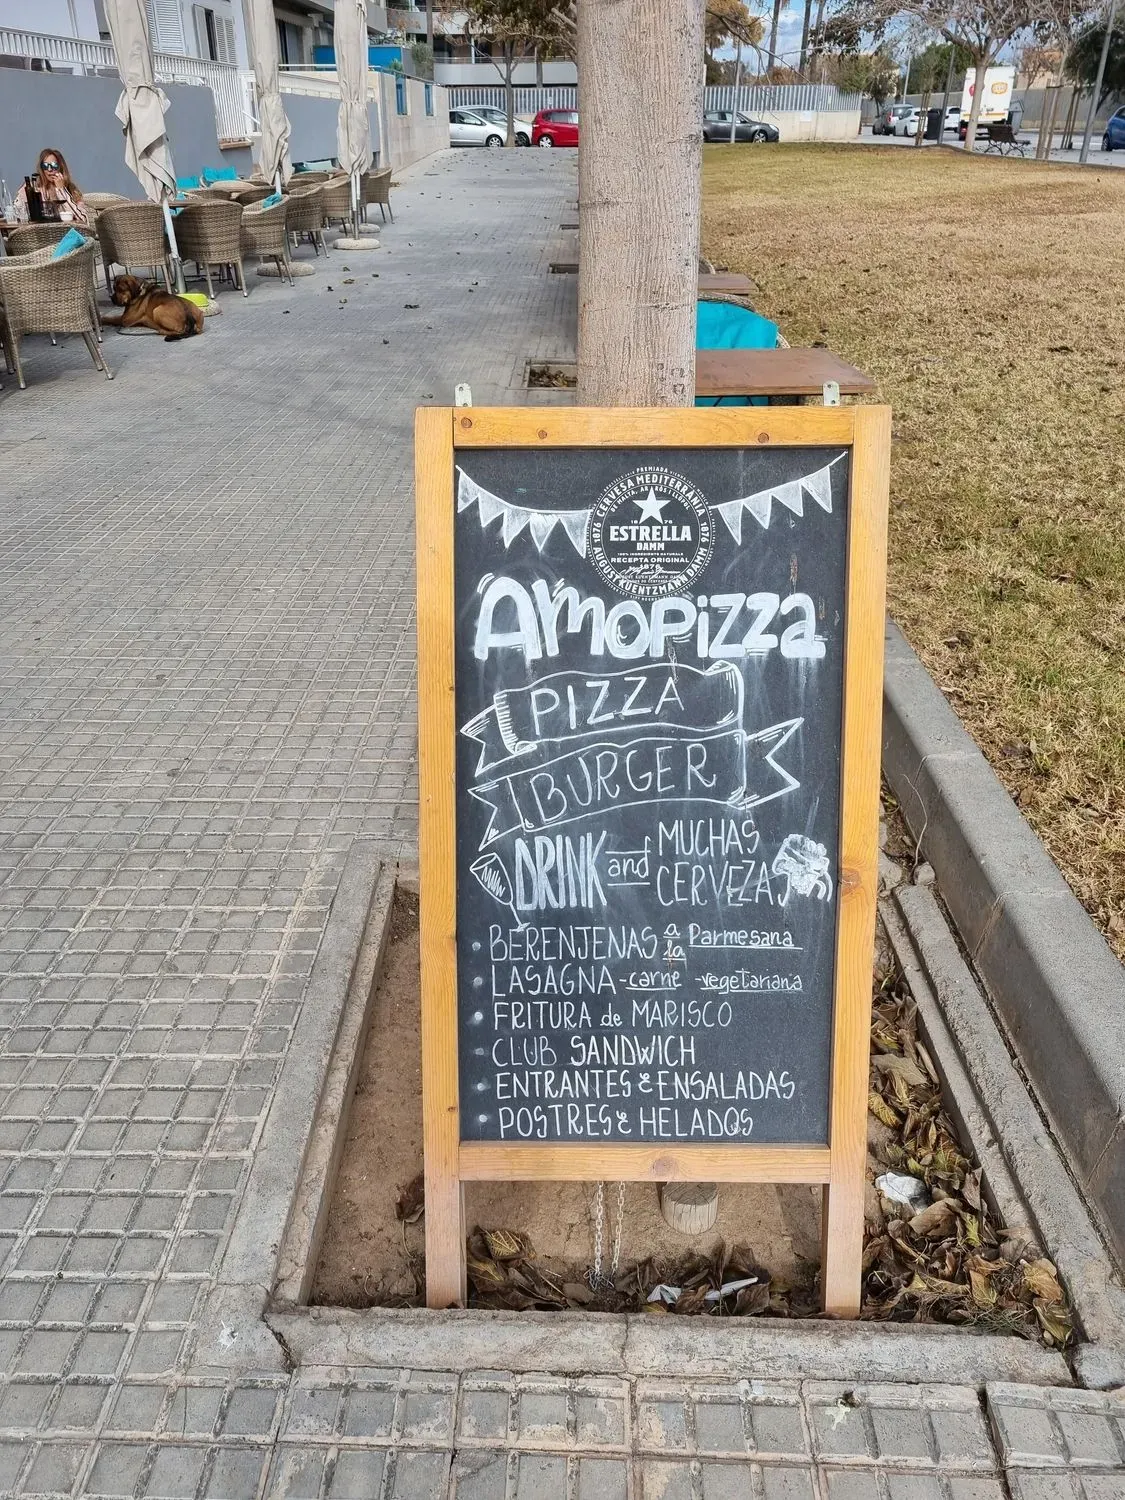 PREMIADA
CERVESA MEDITERRÀNIA
DE MALTA, ARRÒS I LLÚPOL
1876
1876
ESTRELLA
DAMM
100% INGREDIENTS NATURALS
RECEPTA ORIGINAL
1876
AUGUST KUENTZMANN DAMM
AMOPIZZA
PIZZA
BURGER
DRINK and MUCHAS
CERVEZAS
BERENJENAS a la Parmesana
LASAGNA -carne -vegetariana
FRITURA de MARISCO
CLUB SANDWICH
ENTRANTES & ENSALADAS
POSTRES & HELADOS